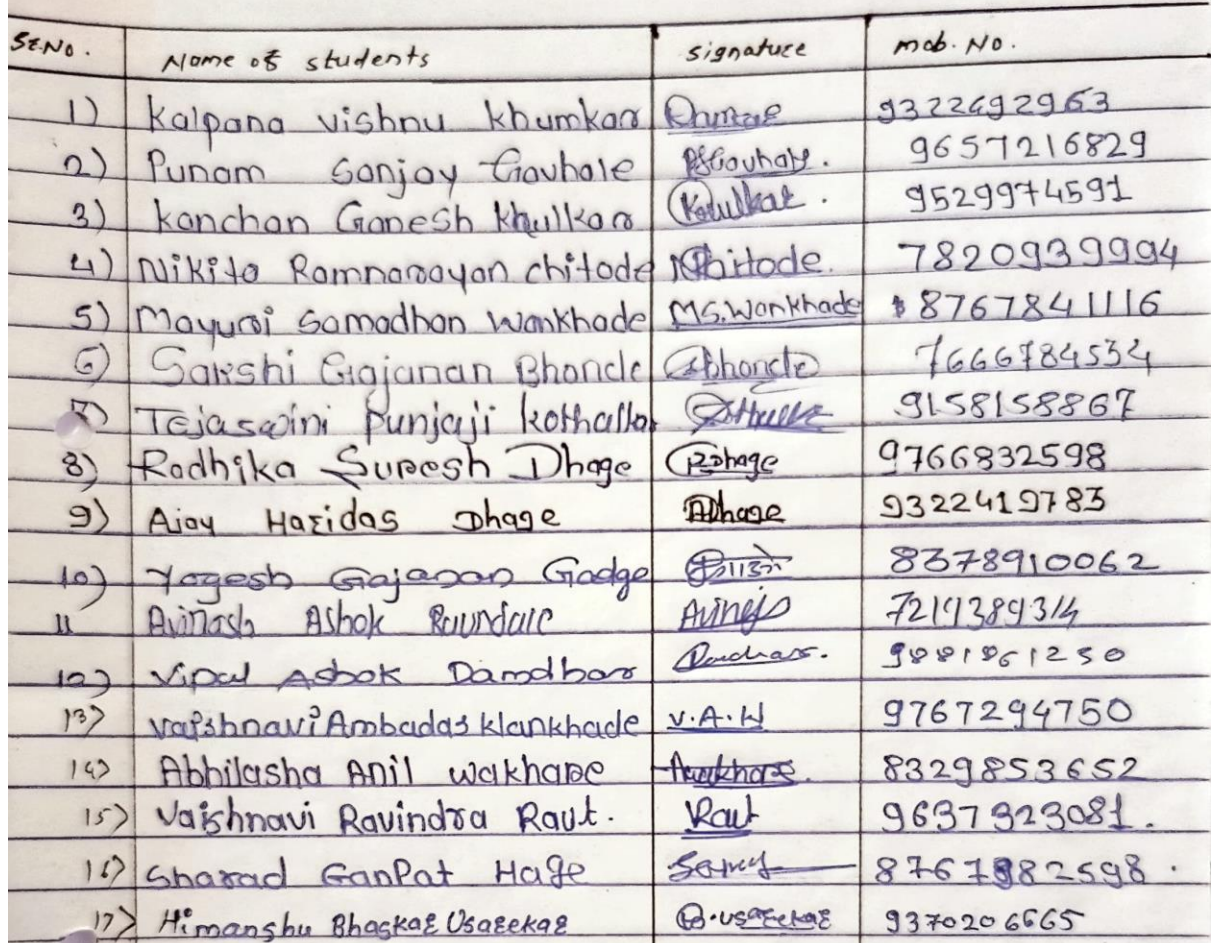 Sr.No. Name of students signature mob. No.
1) Kalpana vishnu khumkar 9322692963
2) Punam Sanjay Gavhale PSGavhale. 9657216829
3) kanchan Ganesh khulkar Kchulkar. 9529974591
4) Nikita Ramnarayan chitode NRhitode. 7820939994
5) Mayuri Samadhan Wankhade MS.Wankhade 8767841116
6) Sakshi Gajanan Bhonde Bhonde 7666784534
7) Tejaswini Punjaji kothalkar 9158158867
8) Radhika Suresh Dhage RDhage 9766832598
9) Ajay Haridas Dhage ADhage 9322419783
10) Yogesh Gajanan Gadge 8378910062
11 Avinash Ashok Raundale 7219389314
12) Vipul Ashok Damdhar 9881861230
13) vaishnavi Ambadas Wankhade V.A.W 9767294750
14) Abhilasha Anil wakhare Awakhare. 8329853652
15) Vaishnavi Ravindra Raut. Raut 9637323081.
16) Sharad GanPat Hage 8767982598.
17) Himanshu Bhaskar Usarekar B.usarekar 9370206665